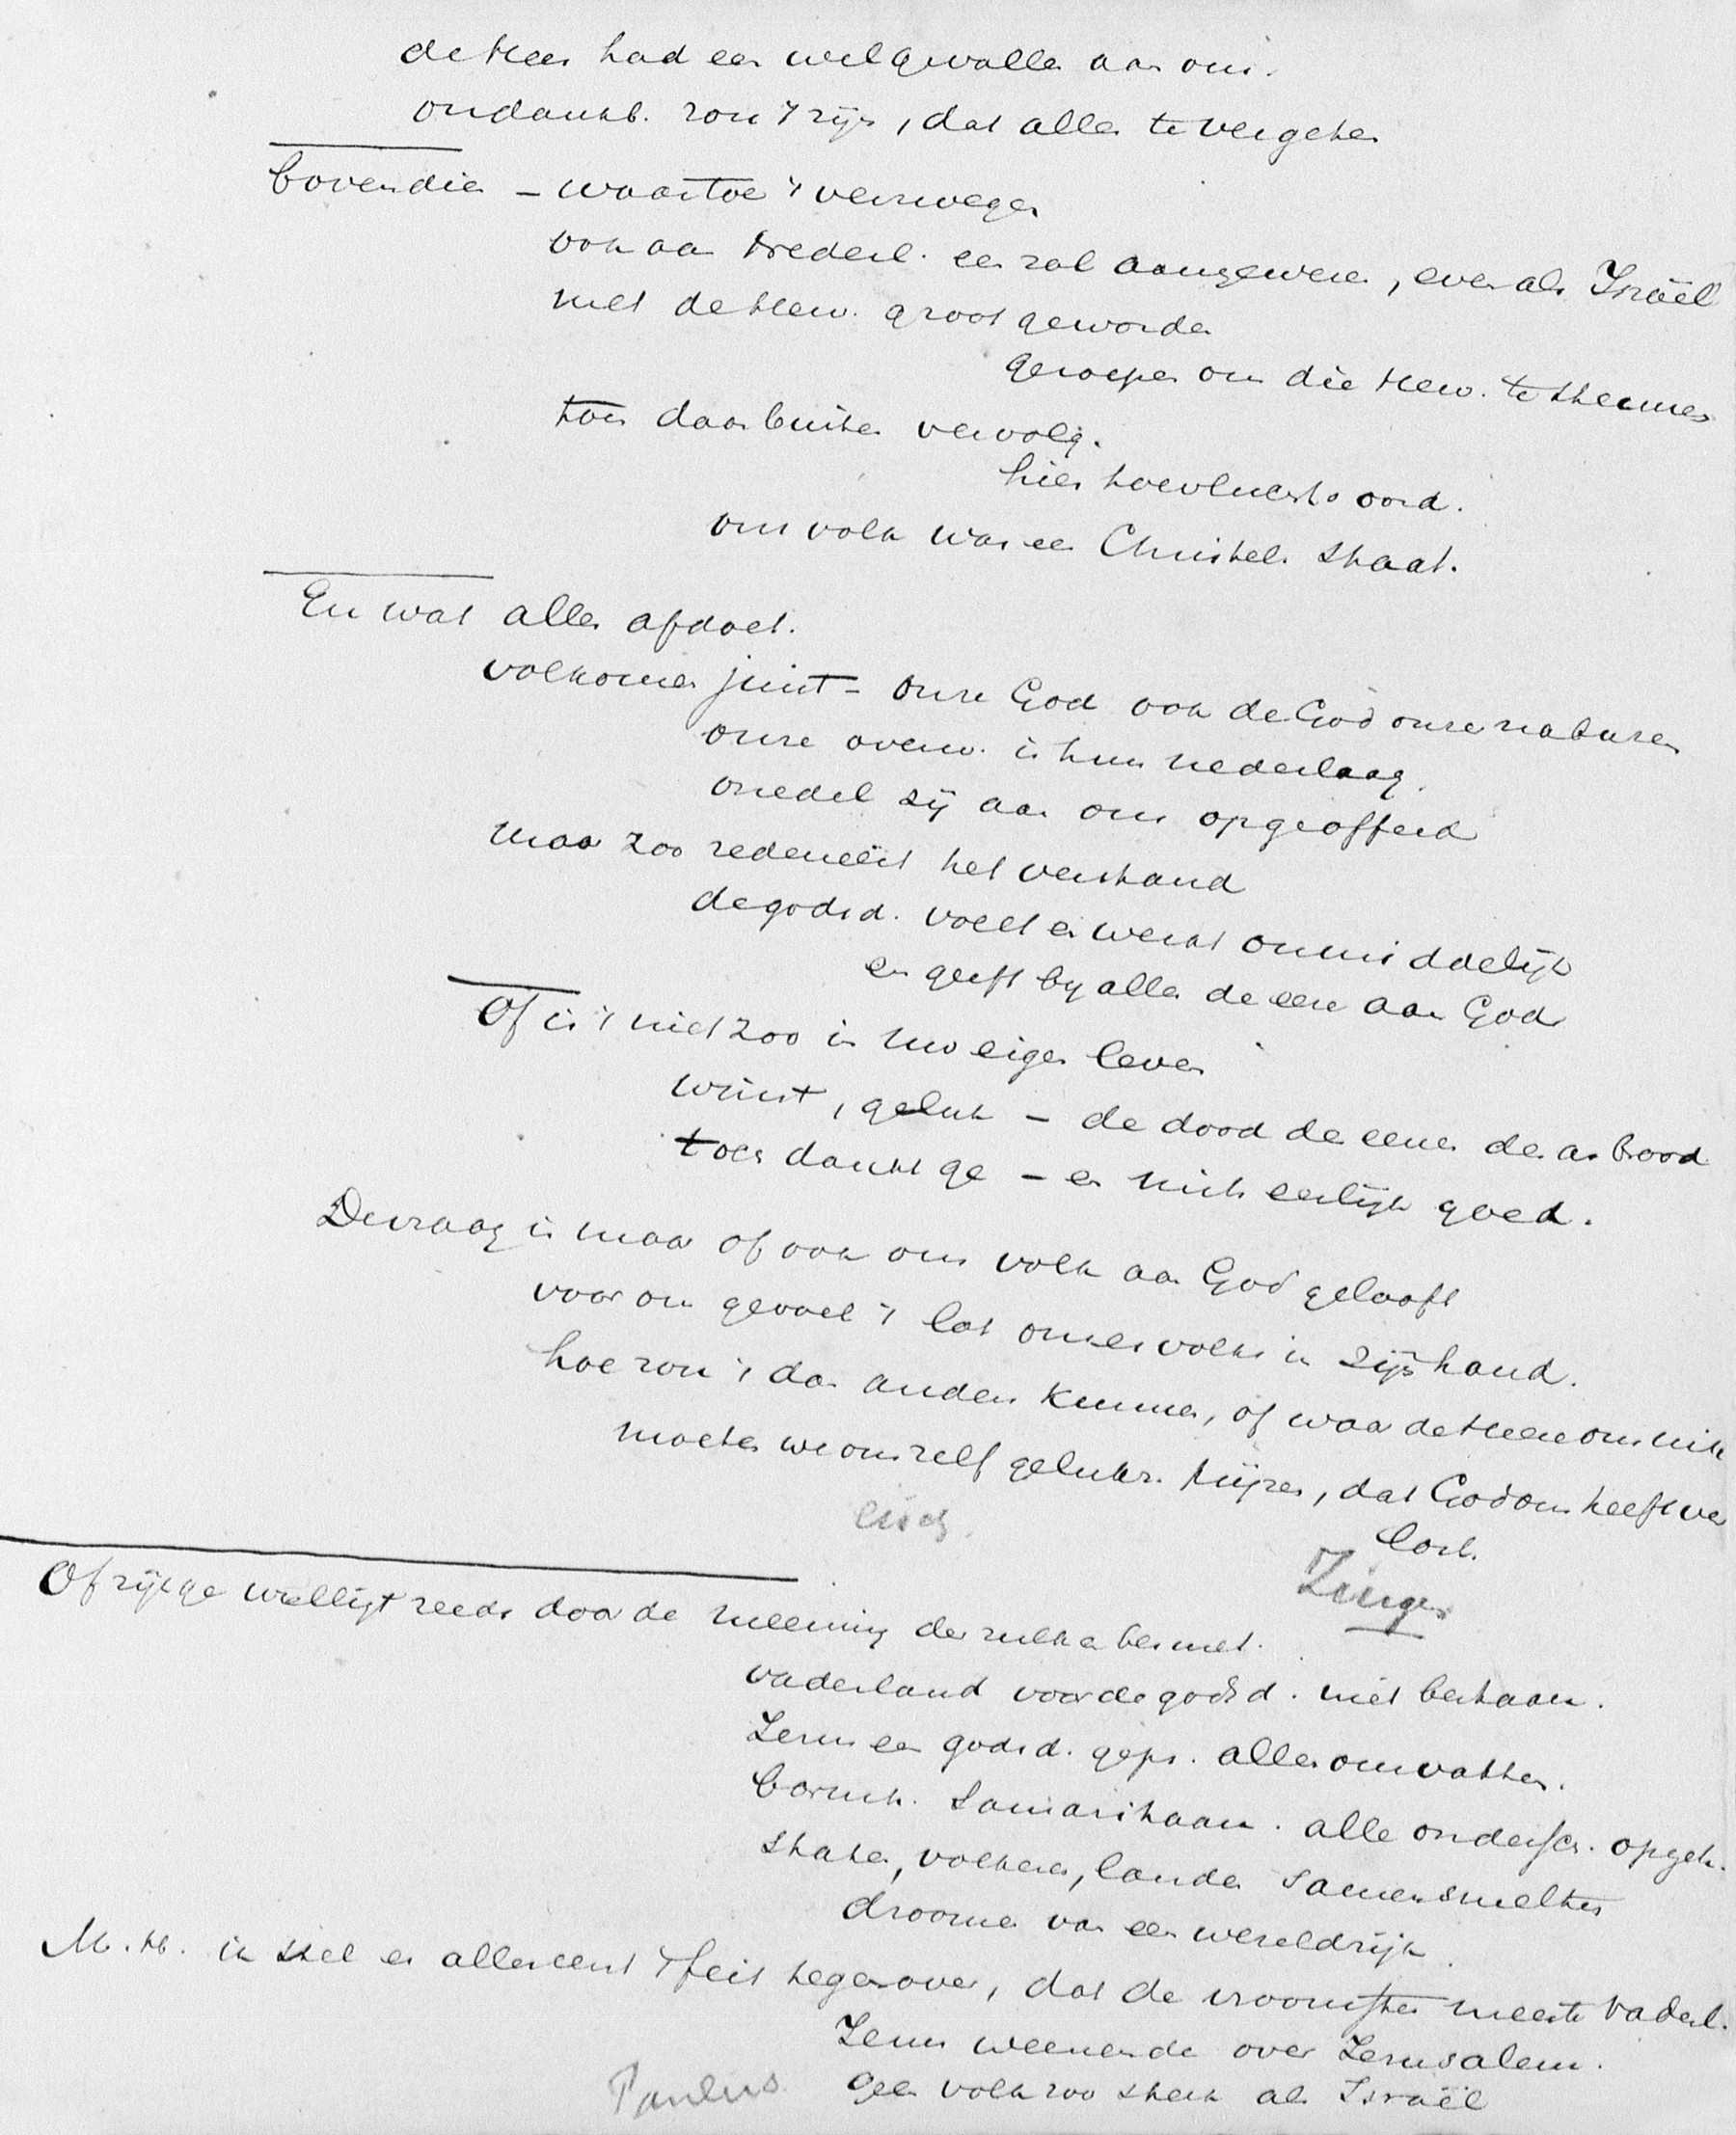 de Heer had een welgevallen aan ons.
ondankb. zou 't zijn, dat alles te vergeten
bovendien – waartoe 't verzwegen
ook aan Nederl. een rol aangewezen, even als Israël
met de Herv. groot geworden
geroepen om die Herv. te steunen
toen daarbuiten vervolg.
hier toevluchtsoord.
ons volk was een Christel. staat.
En wat alles afdoet.
volkomen juist – onze God ook de God onzer naburen
onze overw. is hun nederlaag.
onedel zij aan ons opgeofferd
maar zoo redeneert het verstand
de godsd. voelt en werkt onmiddelijk
en geeft bij alles de eere aan God
Of is 't niet zoo in Uw eigen leven
winst, geluk – de dood des eenen des an. brood
toch dankt ge – en niets eerlijk goed.
De vraag is maar of ook ons volk aan God gelooft
voor ons gevoel 't lot onzes volks in zijn hand.
hoe zou 't dan anders kunnen, of waar de Heere ons uit
moeten we ons zelf gelukk. prijzen, dat God ons heeft ver
lost.
eisch.
Zingen
Of zijt ge wellicht reeds door de meening der zulken besmet.
vaderland voor de godsd. niet bestaan.
Jezus een godsd. gepr. alles omvatten.
barmh. Samaritaan. alle onderscr. opgeh.
staten, volkeren, landen samensmelten
droomen van een wereldrijk.
M. H. ik stel er allereerst 't feit tegenover, dat de vroomsten meeste vaderl.
Jezus weenende over Jeruzalem.
Paulus. geen volk zoo sterk als Israël